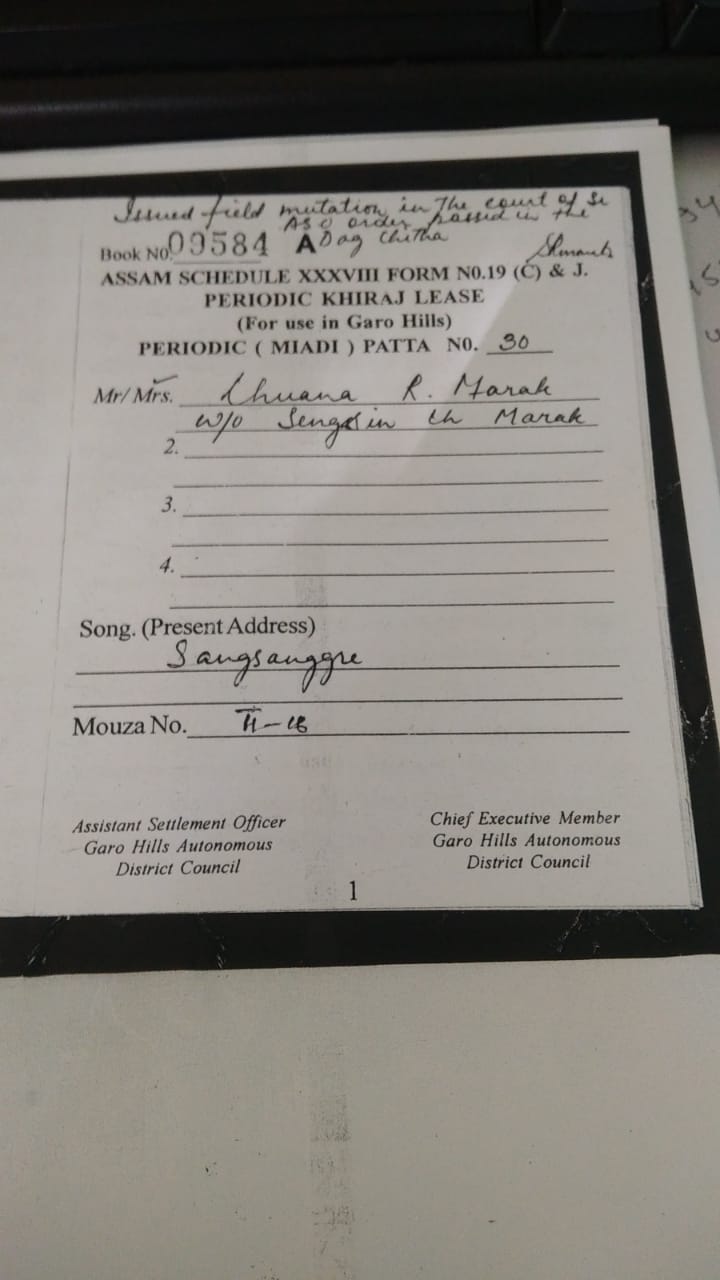 Issued field mutation in The court of Sr
ASO order passed in the
Book No. 09584 A Dag Chitha
ASSAM SCHEDULE XXXVIII FORM N0.19 (C) & J.
PERIODIC KHIRAJ LEASE
(For use in Garo Hills)
PERIODIC ( MIADI ) PATTA N0. 30
Mr/ Mrs. Chuana R. Marak
w/o Ch Marak
2.
3.
4.
Song. (Present Address)
Sangsanggre
Mouza No. II-18
Assistant Settlement Officer
Garo Hills Autonomous
District Council
Chief Executive Member
Garo Hills Autonomous
District Council
1